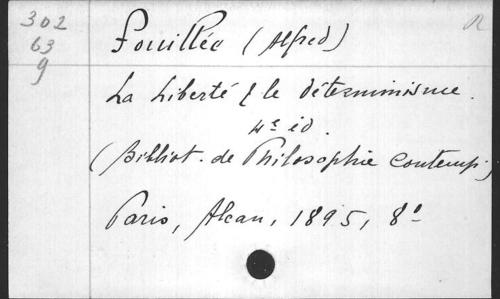 302
63
9
R
Fouillée (Alfred)
La Liberté & le déterminisme.
4e éd.
(Bibliot. de Philosophie contemp.)
Paris, Alcan, 1895, 8°